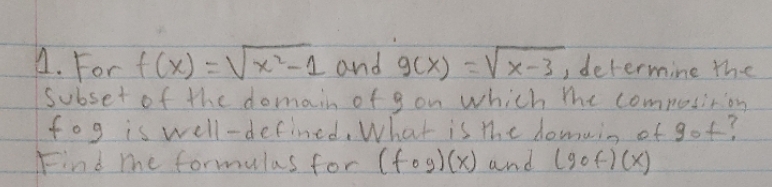 1. For f(x) = √x²-1 and g(x) = √x-3, determine the
subset of the domain of g on which the composition
fog is well-defined. What is the domain of gof?
Find the formulas for (fog)(x) and (gof)(x)